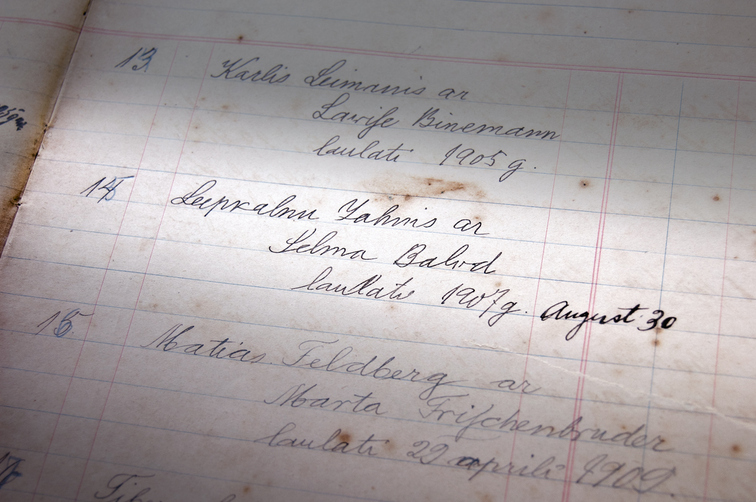 13 Karlis Leimanis ar
Lawise Binemann
laulati 1905 g.
14 Leepkalnu Jahnis ar
Selma Balod
laulati 1907 g. August 30
15 Matias Feldberg ar
Marta Frischenbruder
laulati 22 aprili 1909